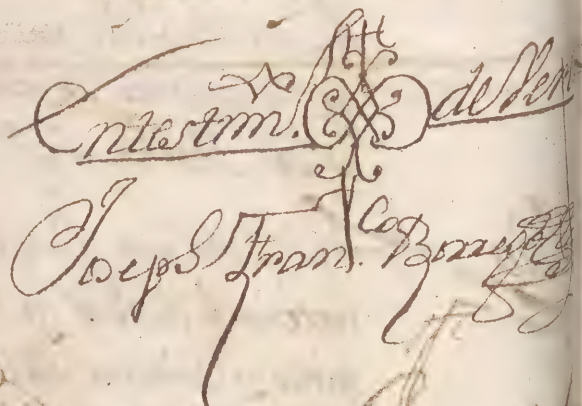 Entestim.º de Ver
Joseph Fran.co Borrego